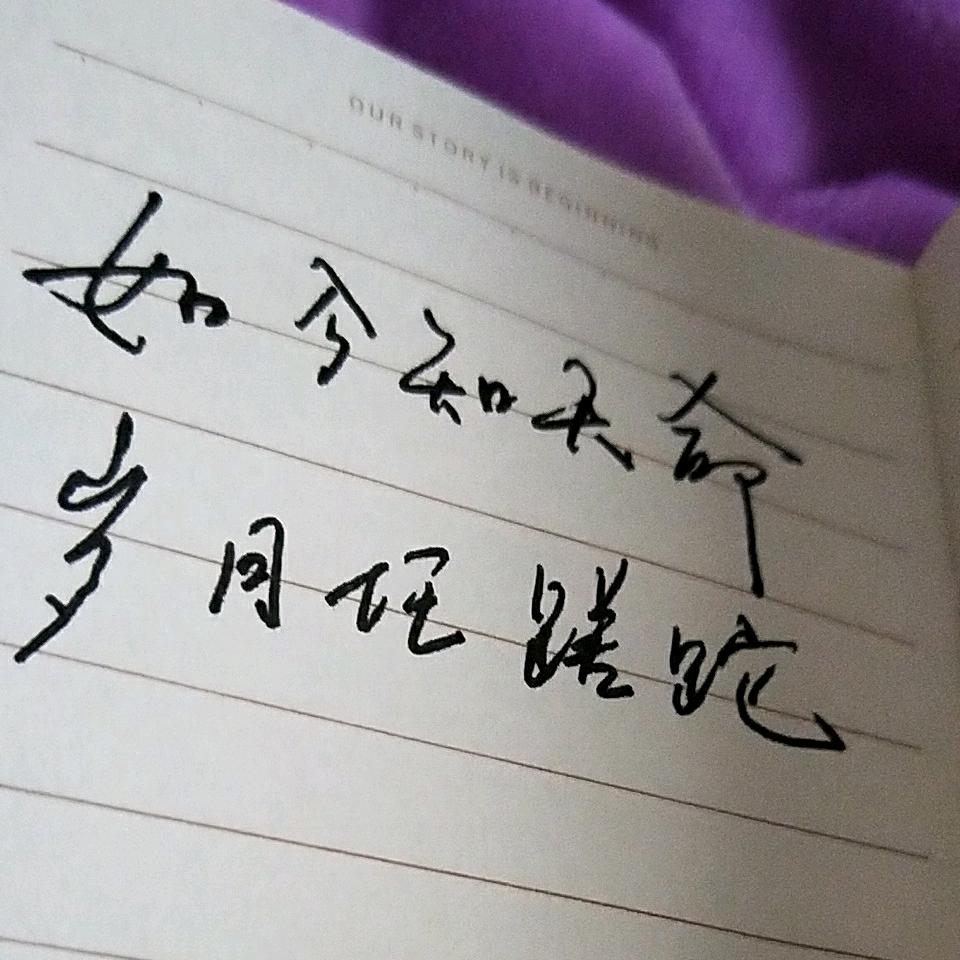 OUR STORY IS BEGINNING
如今知天命
岁月任蹉跎